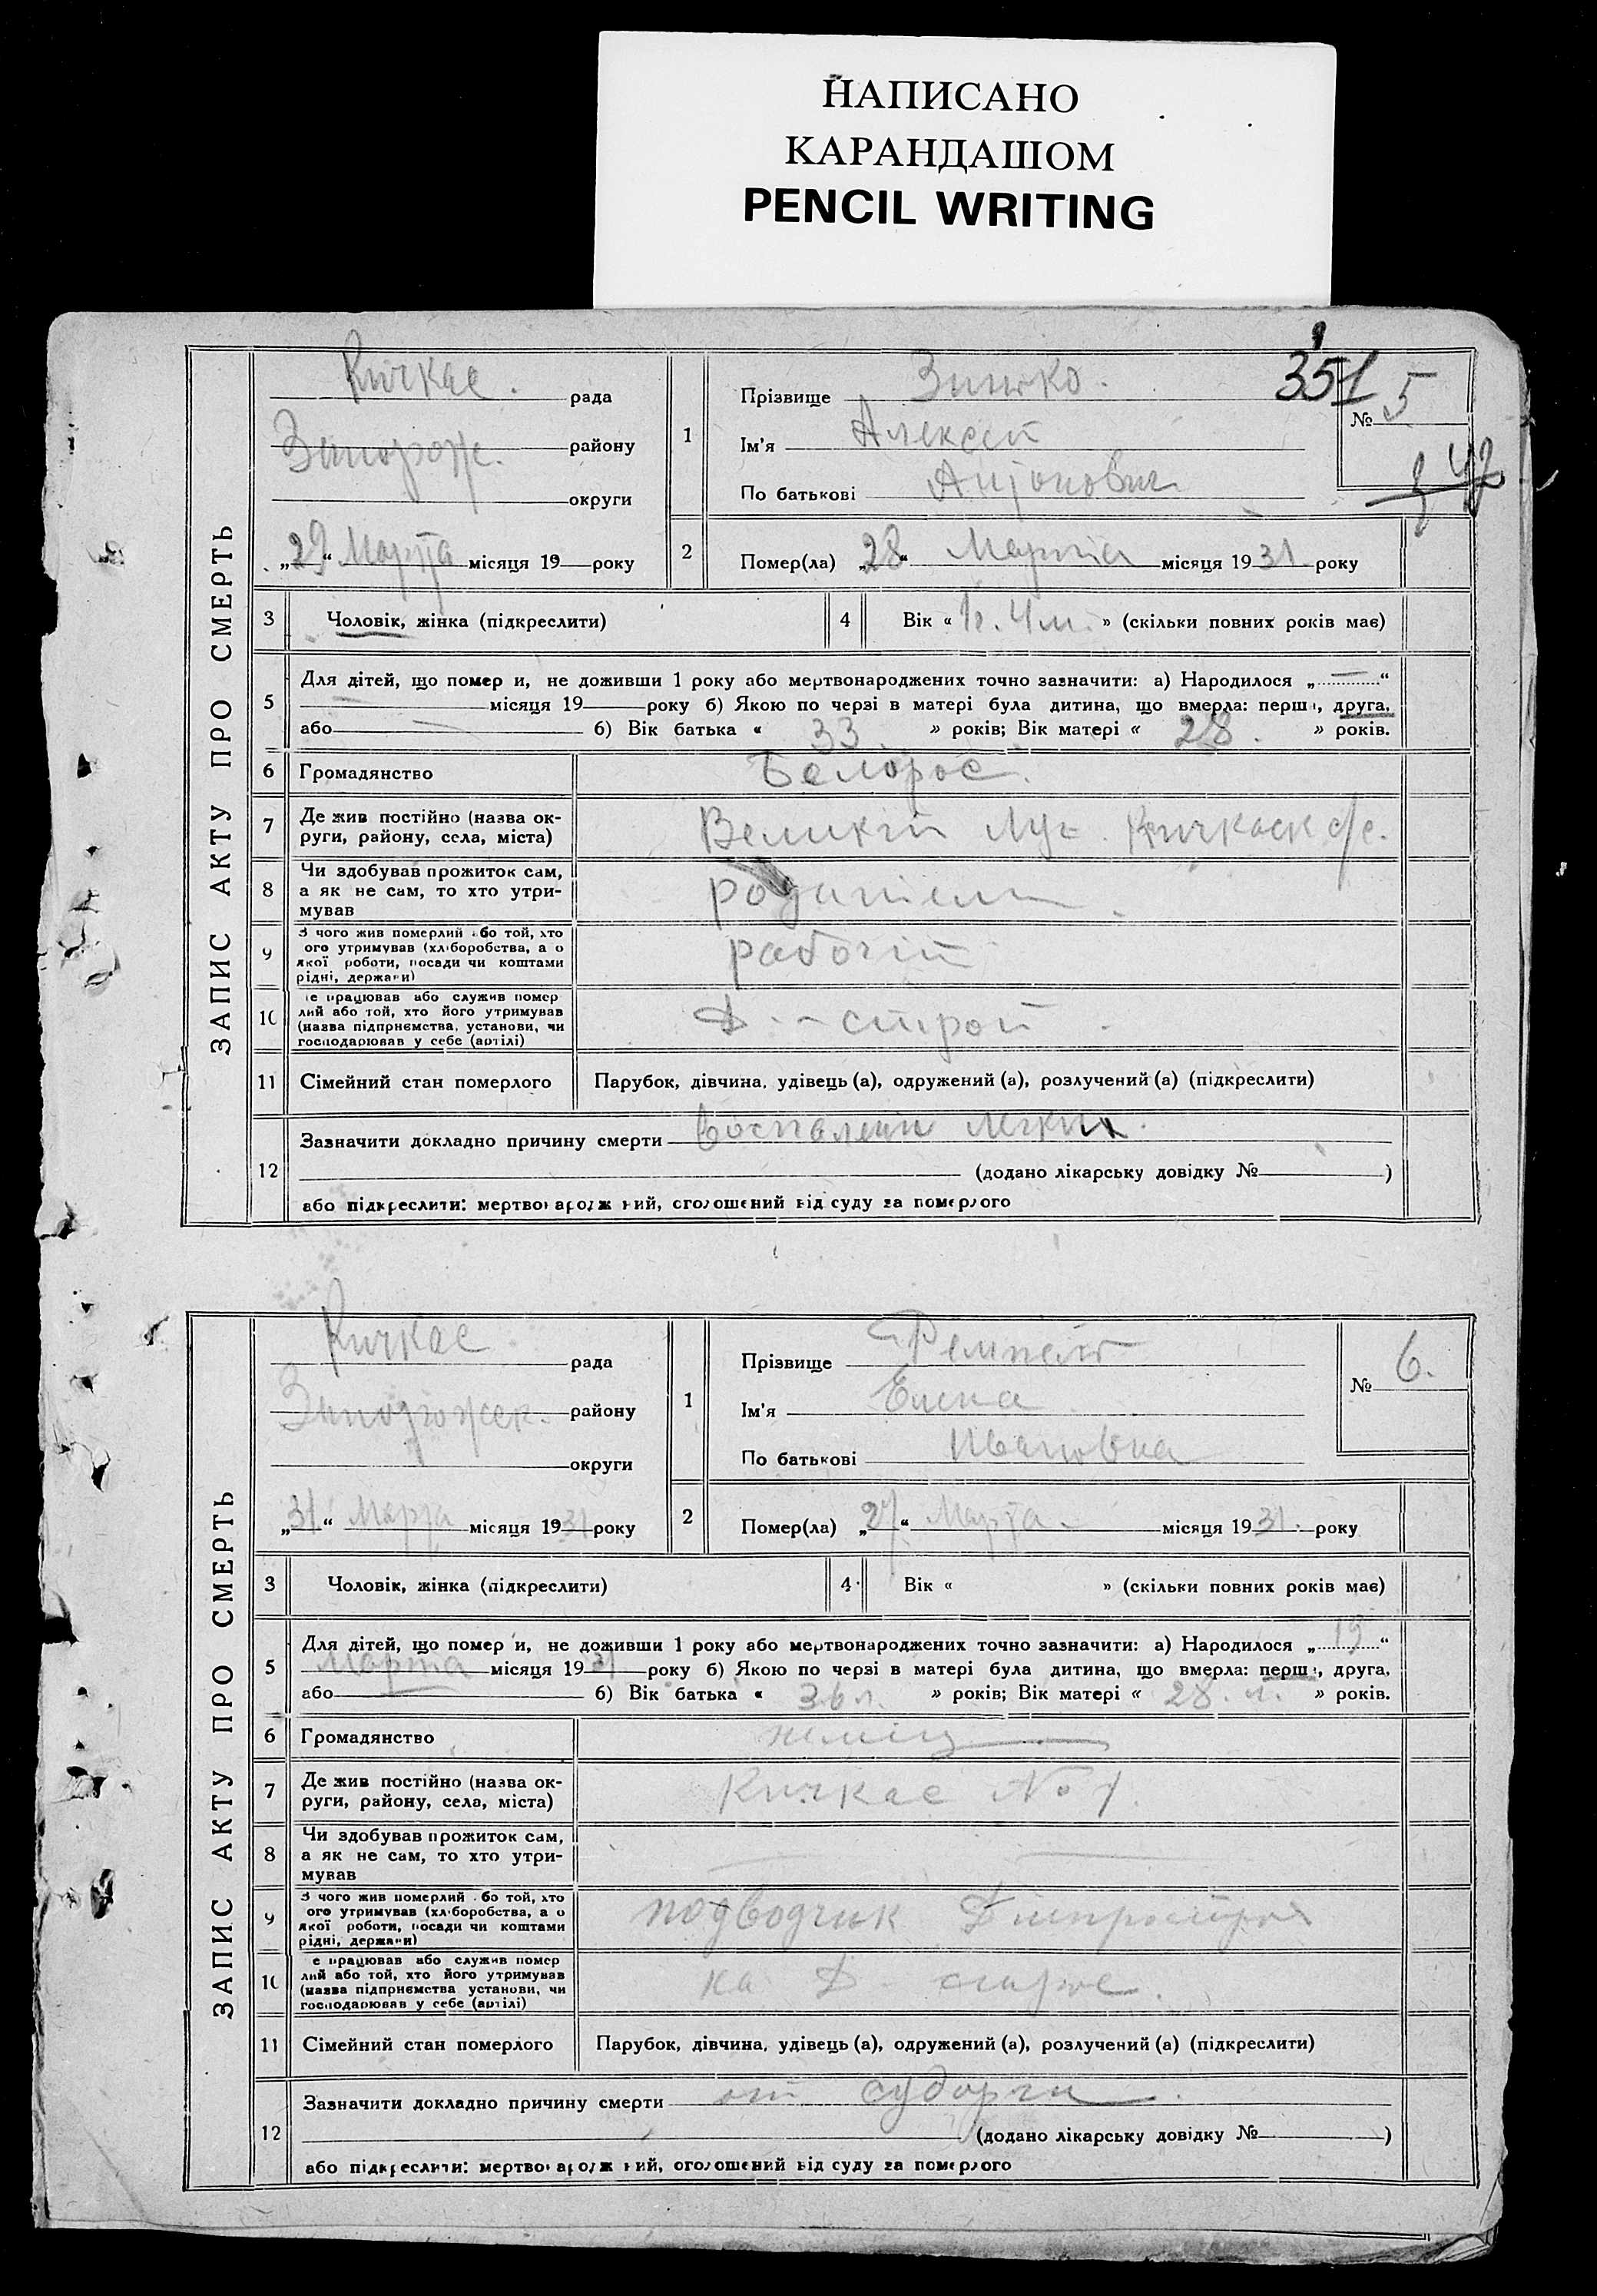 НАПИСАНО
КАРАНДАШОМ
PENCIL WRITING
351
ЗАПИС АКТУ ПРО СМЕРТЬ
Кичкас. рада
Запорож. району
округи
„29“ Марта місяця 19 року
1
Прізвище Зинько.
Ім'я Алексей
По батькові Антонович
№ 5
2 Помер(ла) „28“ Марта місяця 1931 року
3 Чоловік, жінка (підкреслити)
4 Вік « 1 г. 4 м. » (скільки повних років має)
5 Для дітей, що помер и, не доживши 1 року або мертвонароджених точно зазначити: а) Народилося „ — “
— місяця 19 року б) Якою по черзі в матері була дитина, що вмерла: перша, друга,
або — б) Вік батька « 33. » років; Вік матері « 28. » років.
6 Громадянство Белорос.
7 Де жив постійно (назва ок-
руги, району, села, міста) Великій Луг. Кичкаск с/с.
8 Чи здобував прожиток сам,
а як не сам, то хто утри-
мував родители.
9 З чого жив померлий або той, хто
ого утримував (хліборобства, а о
якої роботи, посади чи коштами
рідні, держави) рабочій
10 е працював або служив помер
лий або той, хто його утримував
(назва підприємства, установи, чи
господарював у себе (артілі) Д.-строй.
11 Сімейний стан померлого Парубок, дівчина, удівець (а), одружений (а), розлучений (а) (підкреслити)
12 Зазначити докладно причину смерти воспаление легких.
(додано лікарську довідку № )
або підкреслити: мертвонароджений, оголошений від суду за померлого
ЗАПИС АКТУ ПРО СМЕРТЬ
Кичкас рада
Запорожск. району
округи
„31“ Марта місяця 1931 року
1
Прізвище Ремпель
Ім'я Елена
По батькові Ивановна
№ 6.
2 Помер(ла) „27“ Марта місяця 1931. року
3 Чоловік, жінка (підкреслити)
4 Вік « » (скільки повних років має)
5 Для дітей, що помер и, не доживши 1 року або мертвонароджених точно зазначити: а) Народилося „19“
Марта місяця 1931 року б) Якою по черзі в матері була дитина, що вмерла: перша, друга,
або б) Вік батька « 36 л. » років; Вік матері « 28. л. » років.
6 Громадянство неміц
7 Де жив постійно (назва ок-
руги, району, села, міста) Кичкас № 1.
8 Чи здобував прожиток сам,
а як не сам, то хто утри-
мував —
9 З чого жив померлий або той, хто
ого утримував (хліборобства, а о
якої роботи, посади чи коштами
рідні, держави) подводчик Дніпростроя
10 е працював або служив помер
лий або той, хто його утримував
(назва підприємства установи, чи
господарював у себе (артілі) на Д-строе.
11 Сімейний стан померлого Парубок, дівчина, удівець (а), одружений (а), розлучений (а) (підкреслити)
12 Зазначити докладно причину смерти от судорги.
(додано лікарську довідку № )
або підкреслити: мертвонароджений, оголошений від суду за померлого